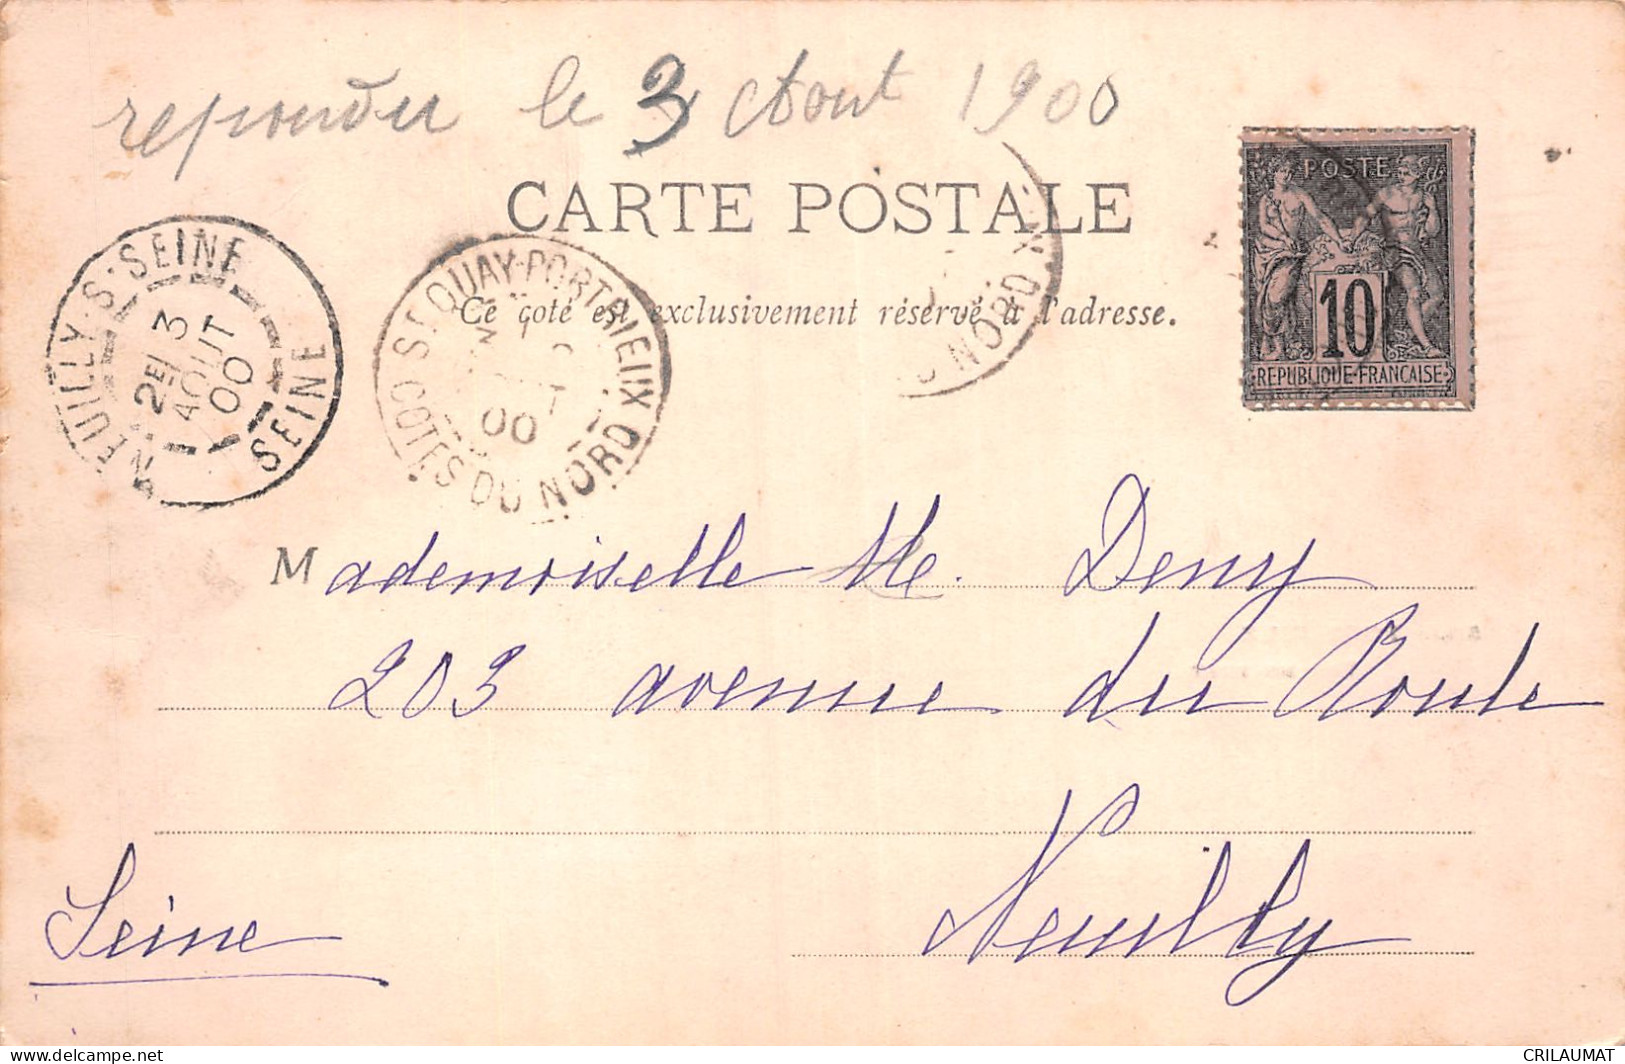 repondu le 3 Aout 1900
CARTE POSTALE
Ce coté est exclusivement réservé à l'adresse.
POSTE
10
REPUBLIQUE-FRANÇAISE
NEUILLY-S-SEINE
2E/ 3
AOUT
00
SEINE
ST QUAY-PORTRIEUX
00
COTES DU NORD
DU NORD
Mademoiselle M. Deny
203 avenue du Roule
Neuilly
Seine
CRILAUMAT
delcampe.net